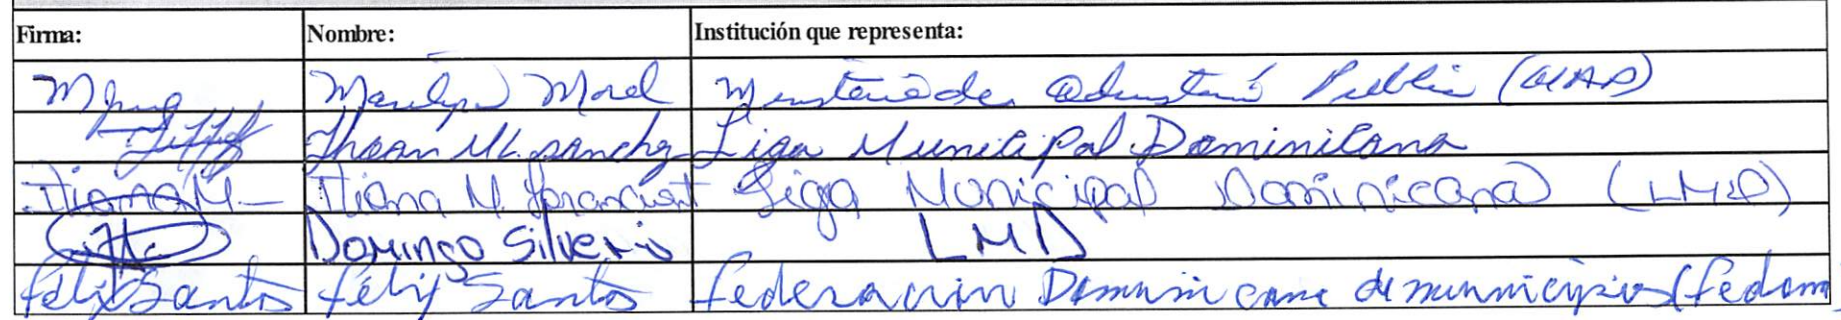 Firma: Nombre: Institución que representa:
Marilyn Morel Ministerio de Public (MAP)
M. Sanchz Liga Municipal Dominicana
Iliana M. Liga Municipal Dominicana (LMD)
Domingo Silverio LMD
Felix Santos Felix Santos Federacion Dominicana de municipios (Fedom